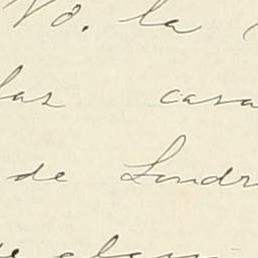 Vd. la
las casa
de Londr